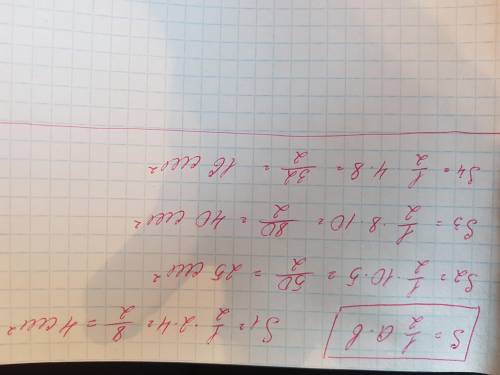 S = 1/2 a·b
S1 = 1/2 · 2·4 = 8/2 = 4 см²
S2 = 1/2 · 10·5 = 50/2 = 25 см²
S3 = 1/2 · 8·10 = 80/2 = 40 см²
S4 = 1/2 · 4·8 = 32/2 = 16 см²